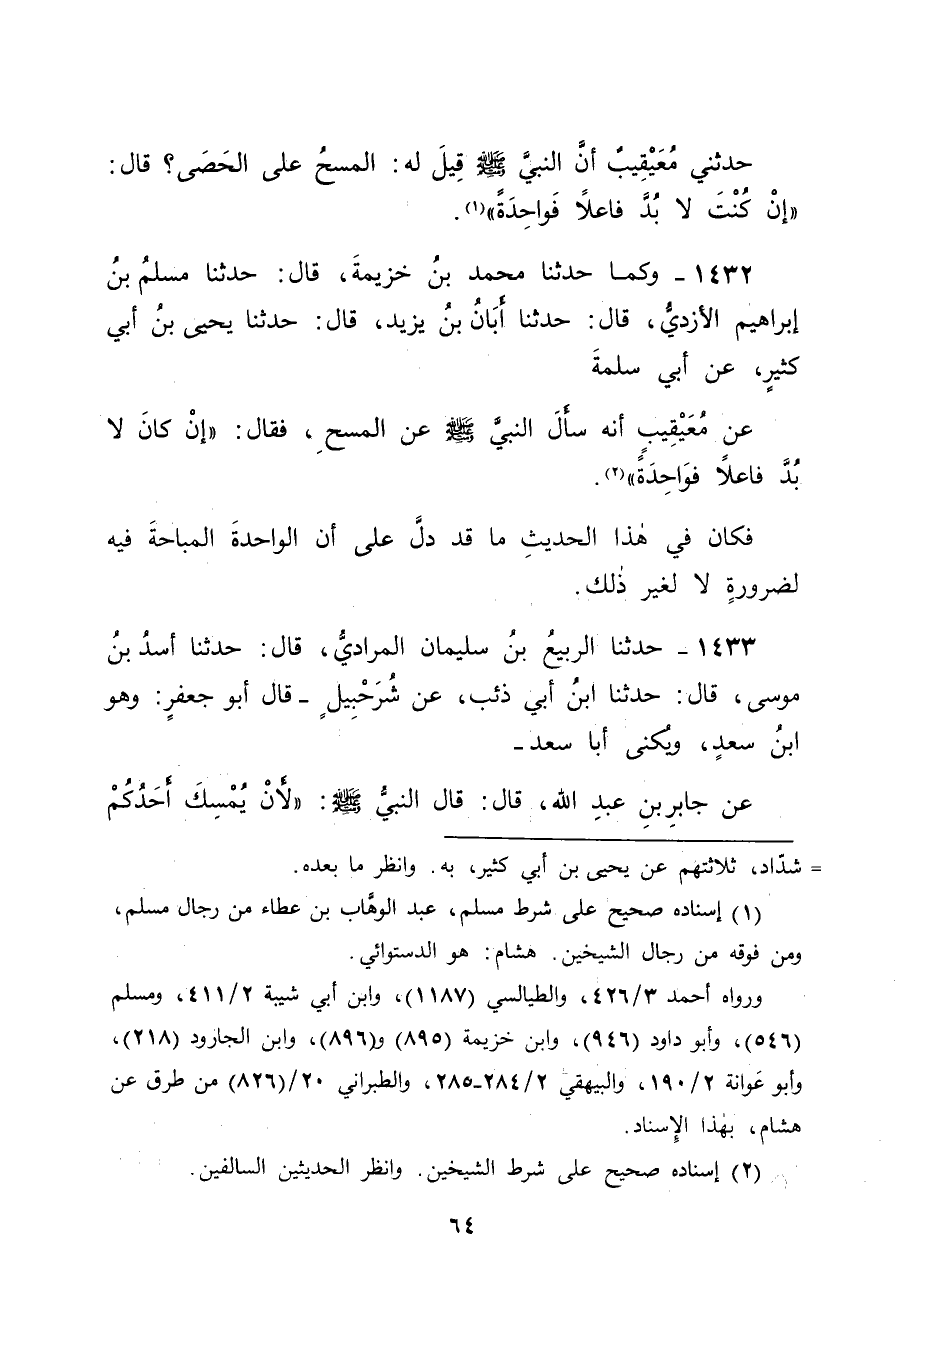 حدثني مُعَيْقِيبٌ أنَّ النبيَّ ﷺ قِيلَ له: المسحُ على الحَصَى؟ قال:
«إنْ كُنْتَ لا بُدَّ فاعلاً فَواحِدَةً»(١).
١٤٣٢ ـ وكمـا حدثنا محمد بنُ خزيمةَ، قال: حدثنا مسلمُ بنُ
إبراهيم الأزديُّ، قال: حدثنا أَبَانُ بنُ يزيد، قال: حدثنا يحيى بنُ أبي
كثيرٍ، عن أبي سلمةَ
عن مُعَيْقِيبٍ أنه سأَلَ النبيَّ ﷺ عن المسحِ، فقال: «إنْ كانَ لا
بُدَّ فاعلاً فوَاحِدَةً»(٢).
فكان في هٰذا الحديثِ ما قد دلَّ على أن الواحدةَ المباحةَ فيه
لضرورةٍ لا لغير ذٰلك.
١٤٣٣ ـ حدثنا الربيعُ بنُ سليمان المراديُّ، قال: حدثنا أسدُ بنُ
موسى، قال: حدثنا ابنُ أبي ذئب، عن شُرَحْبِيلٍ ـ قال أبو جعفرٍ: وهو
ابنُ سعدٍ، ويُكنى أبا سعد ـ
عن جابرِ بنِ عبدِ الله، قال: قال النبيُّ ﷺ: «لَأَنْ يُمْسِكَ أَحَدُكُمْ
= شدّاد، ثلاثتهم عن يحيى بن أبي كثير، به. وانظر ما بعده.
(١) إسناده صحيح على شرط مسلم، عبد الوهَّاب بن عطاء من رجال مسلم،
ومن فوقه من رجال الشيخين. هشام: هو الدستوائي.
ورواه أحمد ٤٢٦/٣، والطيالسي (١١٨٧)، وابن أبي شيبة ٤١١/٢، ومسلم
(٥٤٦)، وأبو داود (٩٤٦)، وابن خزيمة (٨٩٥) و(٨٩٦)، وابن الجارود (٢١٨)،
وأبو عَوانة ١٩٠/٢، والبيهقي ٢٨٤/٢ـ٢٨٥، والطبراني ٢٠/(٨٢٦) من طرق عن
هشام، بهٰذا الإسناد.
(٢) إسناده صحيح على شرط الشيخين. وانظر الحديثين السالفين.
٦٤